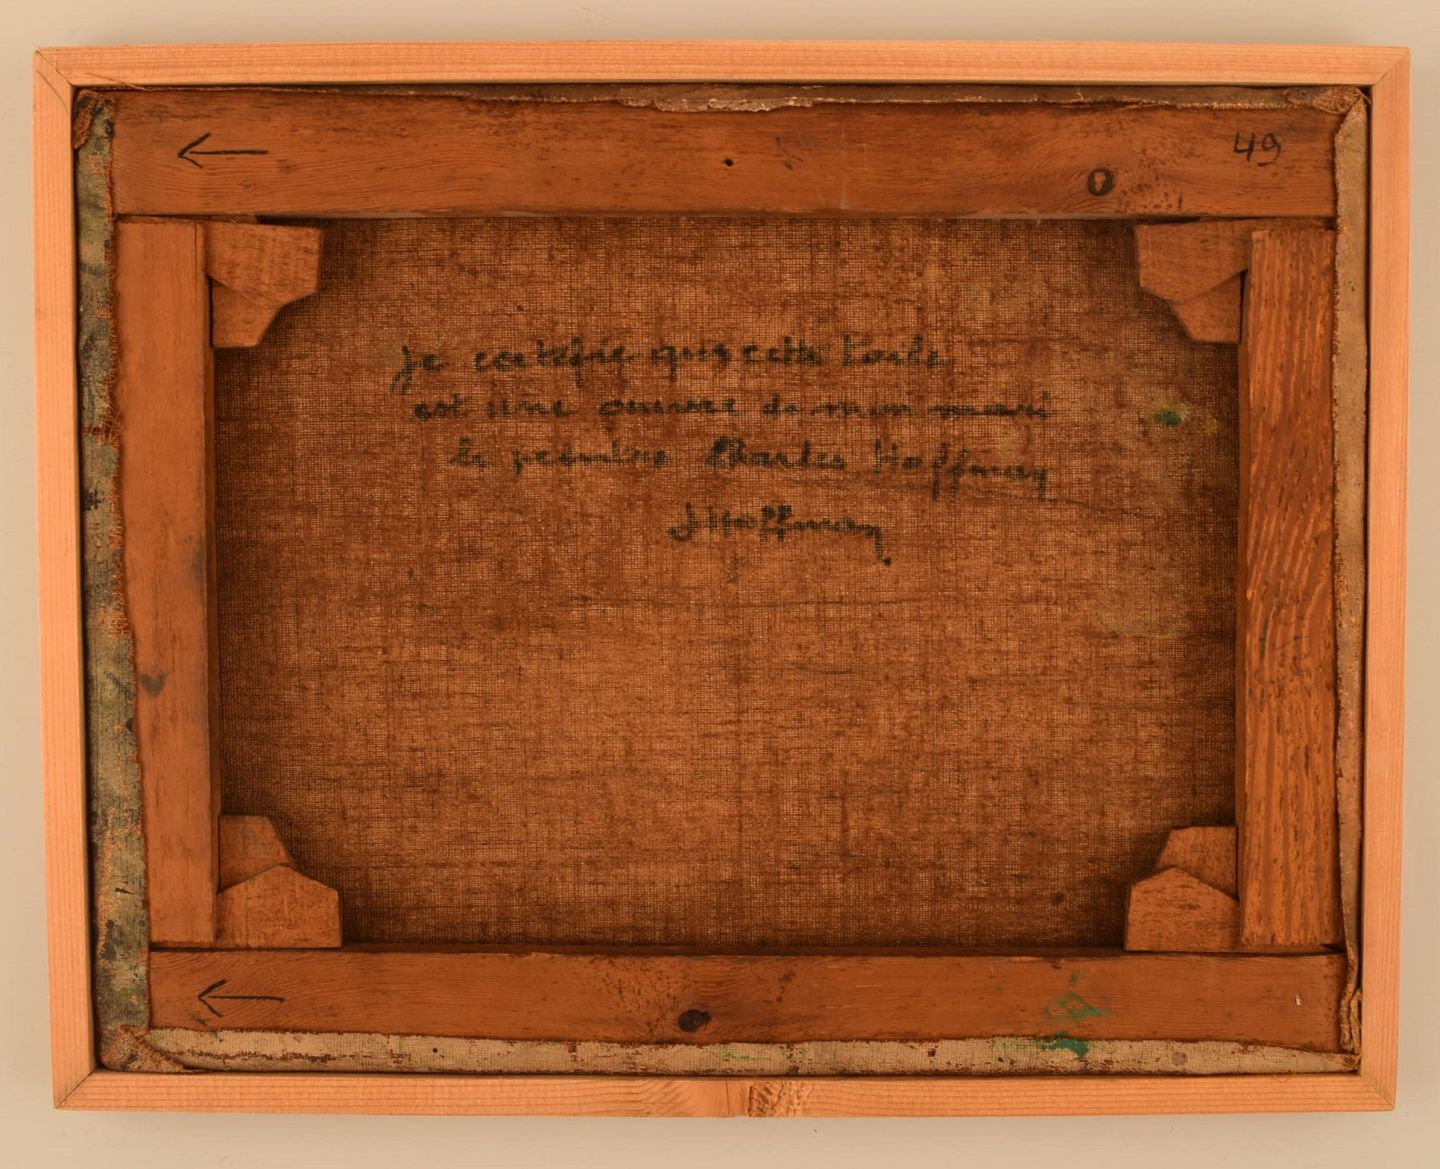 49
Je certifie que cette toile
est une oeuvre de mon mari
le peintre Charles Hoffman
J Hoffman